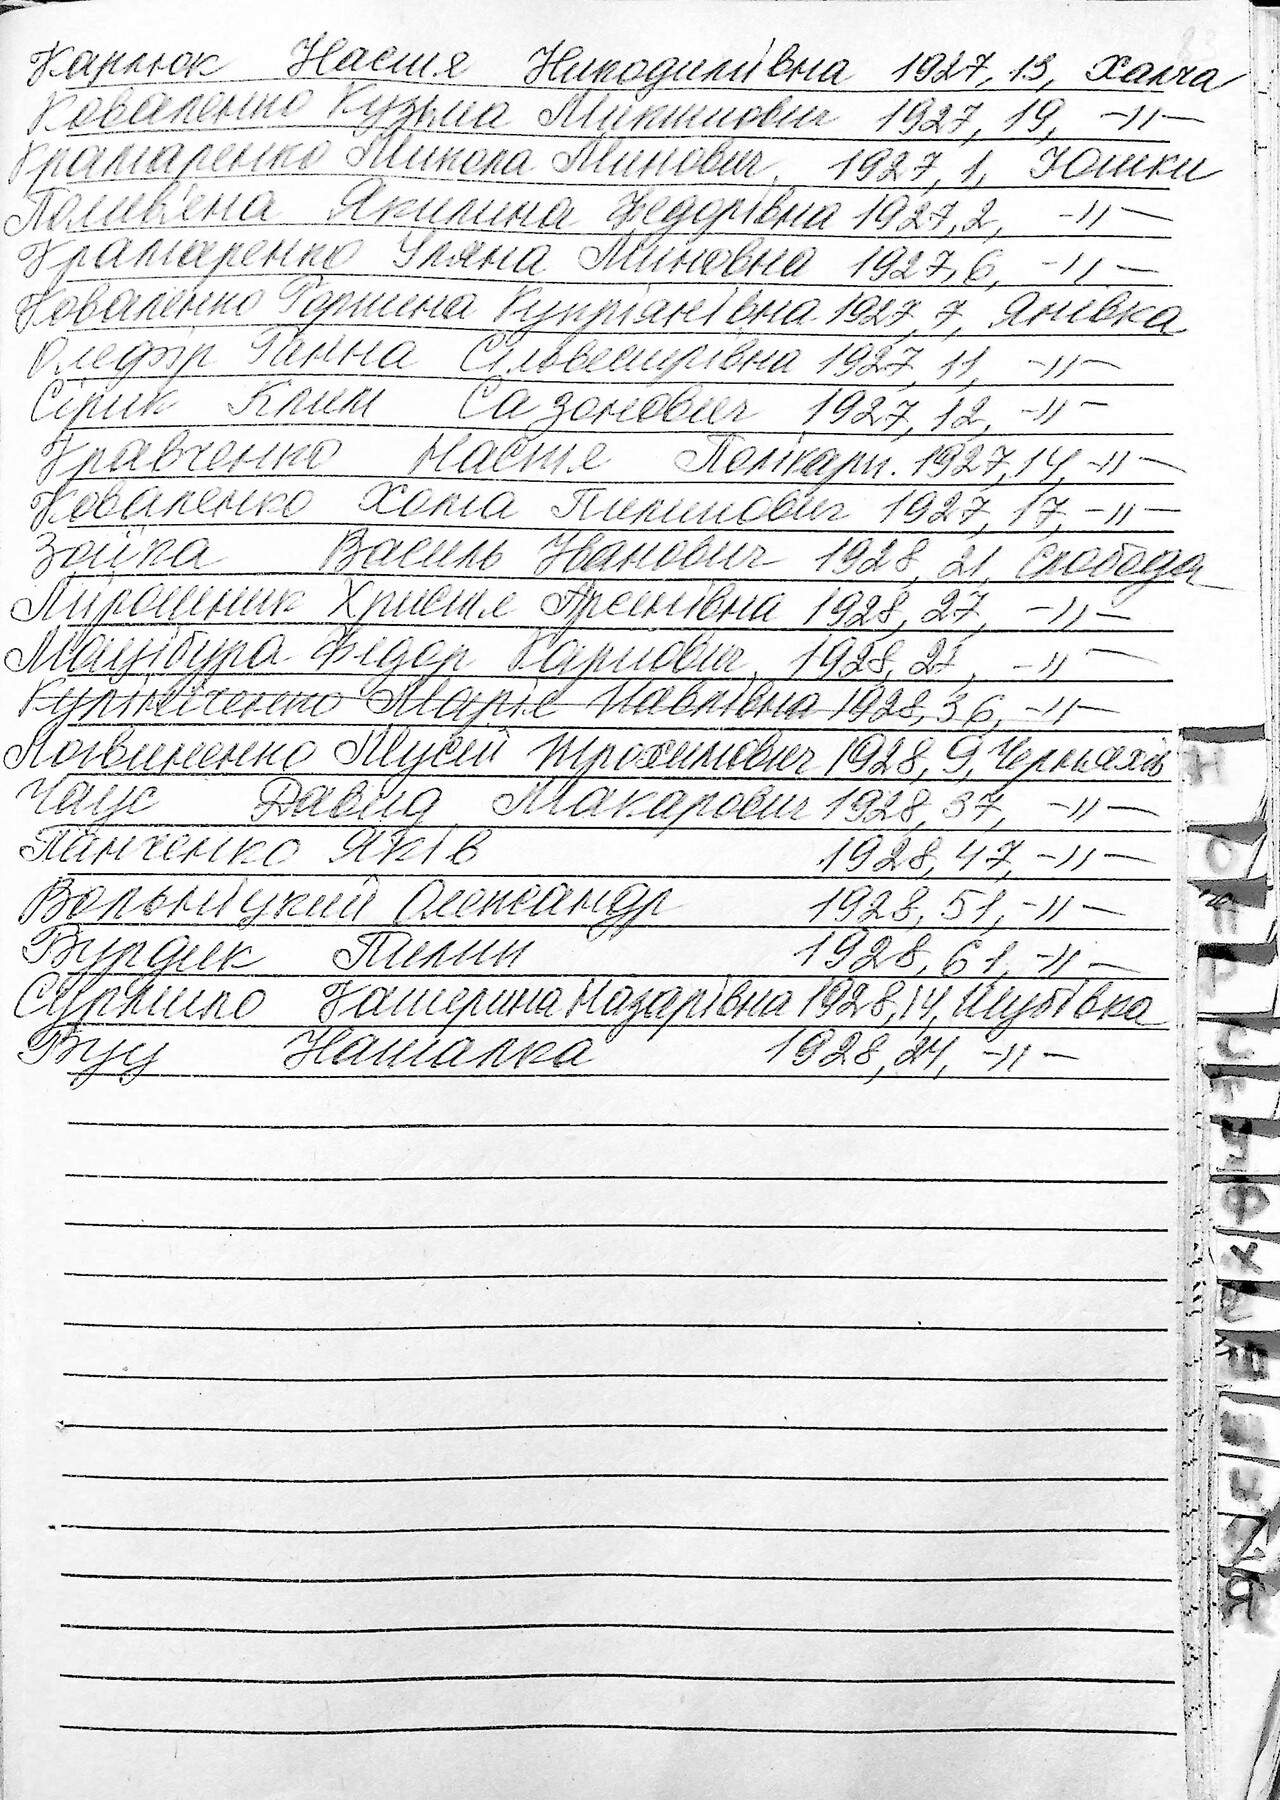 83
Карпюк Настя Никодимівна 1927, 13, Халча
Коваленко Кузьма Микитович 1927, 19, -"-
Крамаренко Микола Минович, 1927, 1, Юшки
Полив'яна Якилина Федорівна 1927, 2, -"-
Крамаренко Уляна Миновна 1927, 6, -"-
Коваленко Горпина Купріянівна 1927, 7, Янівка
Олефір Ганна Сільвестрівна 1927, 11, -"-
Сірик Клим Сазонович 1927, 12, -"-
Кравченко Настя Полікарп. 1927, 14, -"-
Коваленко Хома Пилипович 1927, 17, -"-
Зоїна Василь Іванович 1928, 21, Слобода
Мірошник Христя Арсенівна 1928, 27, -"-
Мацибура Федор Карпович, 1928, 27, -"-
Марія Павлівна 1928, 36, -"-
Логвиненко Мусій Трохимович 1928, 9, Черняхів
Чаус Давид Макарович 1928, 37, -"-
Панченко Яків 1928, 47, -"-
Вольніцкий Олександр 1928, 51, -"-
Бурдик Пилип 1928, 61, -"-
Катерина Назарівна 1928, 14, Шубівка
Буу Наталка 1928, 24, -"-
Н
О
П
Р
С
Т
У
Ф
Х
Я